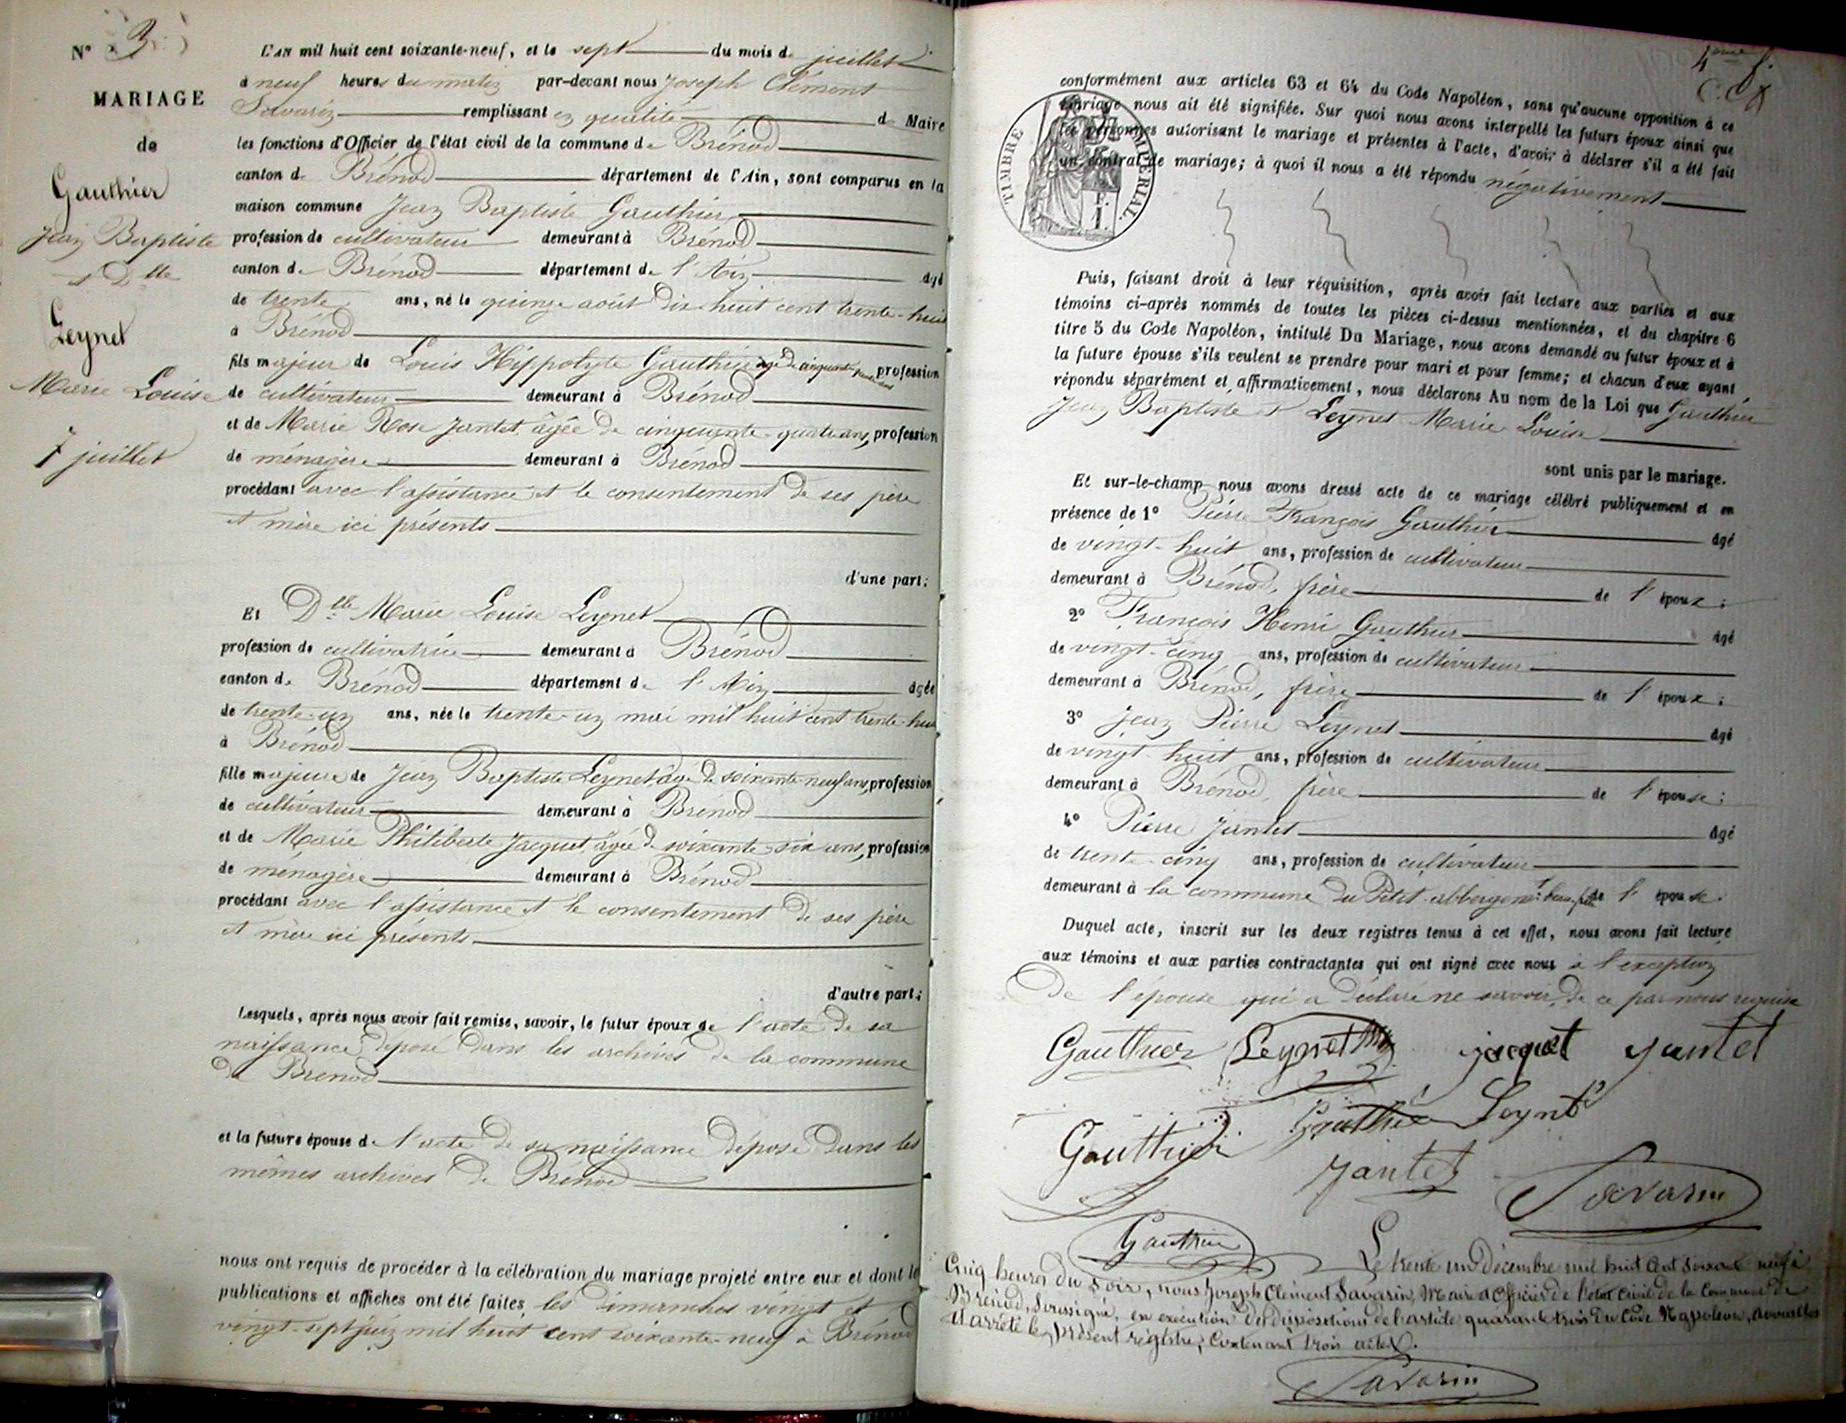 N° 3
MARIAGE
de
Gauthier
Jean Baptiste
et Dlle
Leynet
Marie Louise
7 juillet
L'AN mil huit cent soixante-neuf, et le sept du mois de juillet
à neuf heures du matin par-devant nous Joseph Clément
Savarin remplissant en qualité de Maire
les fonctions d'Officier de l'état civil de la commune de Brénod
canton de Brénod département de l'Ain, sont comparus en la
maison commune Jean Baptiste Gauthier
profession de cultivateur demeurant à Brénod
canton de Brénod département de l'Ain âgé
de trente ans, né le quinze août dix huit cent trente-huit
à Brénod
fils majeur de Louis Hippolyte Gauthier âgé de cinquante ans profession
de cultivateur demeurant à Brénod
et de Marie Rose Jantet, âgée de cinquante-quatre ans, profession
de ménagère demeurant à Brénod
procédant avec l'assistance et le consentement de ses père
et mère ici présents
d'une part;
Et Dlle Marie Louise Leynet
profession de cultivatrice demeurant à Brénod
canton de Brénod département de l'Ain âgée
de trente-un ans, née le trente-un mai mil huit cent trente-huit
à Brénod
fille majeure de Jean Baptiste Leynet, âgé de soixante-neuf ans, profession
de cultivateur demeurant à Brénod
et de Marie Philiberte Jacquet, âgée de soixante-six ans, profession
de ménagère demeurant à Brénod
procédant avec l'assistance et le consentement de ses père
et mère ici présents
d'autre part;
Lesquels, après nous avoir fait remise, savoir, le futur époux de l'acte de sa
naissance déposé dans les archives de la commune
de Brénod
et la future épouse de l'acte de sa naissance déposé dans les
mêmes archives de Brénod
nous ont requis de procéder à la célébration du mariage projeté entre eux et dont les
publications et affiches ont été faites les dimanches vingt et
vingt-sept juin mil huit cent soixante-neuf à Brénod
4ème f.
conformément aux articles 63 et 64 du Code Napoléon, sans qu'aucune opposition à ce
mariage nous ait été signifiée. Sur quoi nous avons interpellé les futurs époux ainsi que
les personnes autorisant le mariage et présentes à l'acte, d'avoir à déclarer s'il a été fait
un contrat de mariage; à quoi il nous a été répondu négativement
TIMBRE IMPÉRIAL
Puis, faisant droit à leur réquisition, après avoir fait lecture aux parties et aux
témoins ci-après nommés de toutes les pièces ci-dessus mentionnées, et du chapitre 6
titre 5 du Code Napoléon, intitulé Du Mariage, nous avons demandé au futur époux et à
la future épouse s'ils veulent se prendre pour mari et pour femme; et chacun d'eux ayant
répondu séparément et affirmativement, nous déclarons Au nom de la Loi que Gauthier
Jean Baptiste et Leynet Marie Louise
sont unis par le mariage.
Et sur-le-champ nous avons dressé acte de ce mariage célébré publiquement et en
présence de 1° Pierre François Gauthier âgé
de vingt-huit ans, profession de cultivateur
demeurant à Brénod, frère de l'époux;
2° François Henri Gauthier âgé
de vingt-cinq ans, profession de cultivateur
demeurant à Brénod, frère de l'époux;
3° Jean Pierre Leynet âgé
de vingt-huit ans, profession de cultivateur
demeurant à Brénod, frère de l'épouse;
4° Pierre Jantet âgé
de trente-cinq ans, profession de cultivateur
demeurant à la commune du Petit-abbergemt beau-frère de l'épouse.
Duquel acte, inscrit sur les deux registres tenus à cet effet, nous avons fait lecture
aux témoins et aux parties contractantes qui ont signé avec nous à l'exception
de l'épouse qui a déclaré ne savoir, de ce par nous requise
Gauthier Leynet jacquet jantet
Gauthier Gauthier Leynet
Jantet Savarin
Gauthier
Le trente un Décembre mil huit cent soixante neuf à
Cinq heures du Soir, nous Joseph Clément Savarin, Maire et Officier de l'état Civil de la Commune de
Brénod, Soussigné, en exécution des dispositions de l'article quarante trois du Code Napoléon, avons clos
et arrêté le présent registre, Contenant trois actes.
Savarin